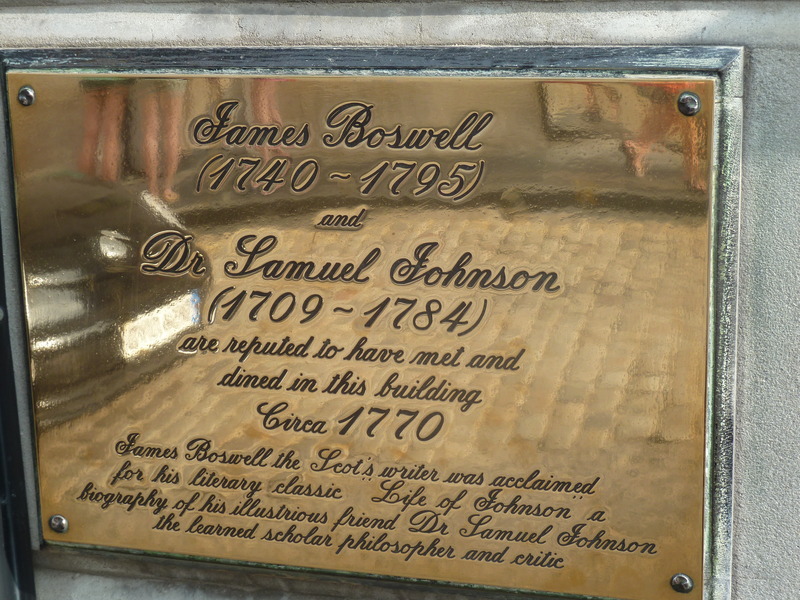 James Boswell
(1740 ~ 1795)
and
Dr Samuel Johnson
(1709 ~ 1784)
are reputed to have met and
dined in this building
Circa 1770
James Boswell the Scot's writer was acclaimed
for his literary classic "Life of Johnson" a
biography of his illustrious friend Dr Samuel Johnson
the learned scholar philosopher and critic